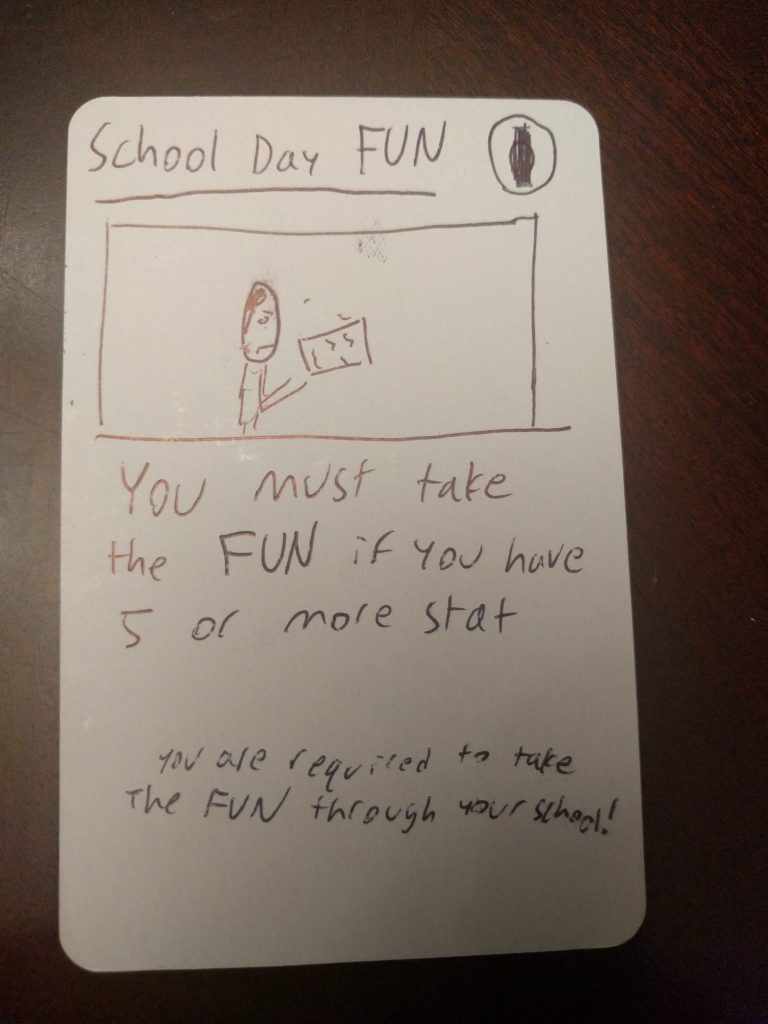 School Day FUN
You must take
the FUN if you have
5 or more stat
you are required to take
The FUN through your school!